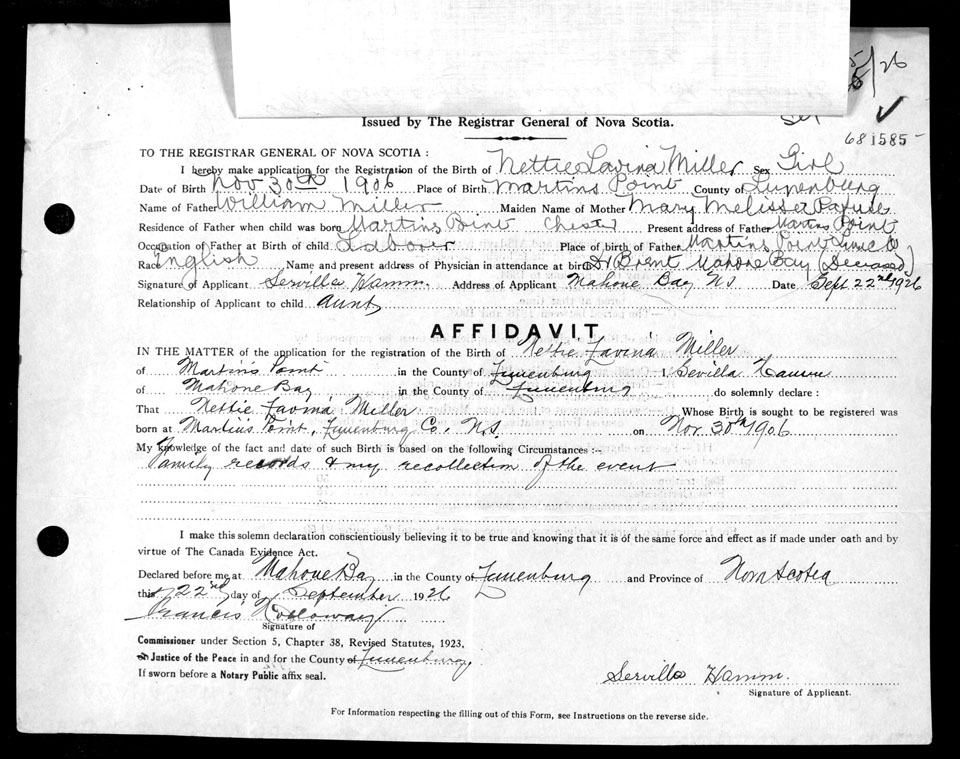 /26
681585
Issued by The Registrar General of Nova Scotia.
TO THE REGISTRAR GENERAL OF NOVA SCOTIA :
I hereby make application for the Registration of the Birth of Nettie Lavina Miller Sex Girl
Date of Birth Nov 30th 1906 Place of Birth Martins Point County of Lunenburg
Name of Father William Miller Maiden Name of Mother Mary Melisser
Residence of Father when child was born Martins Point Chester Present address of Father Martins Point
Occupation of Father at Birth of child Laborer Place of birth of Father Martins Point
Race English Name and present address of Physician in attendance at birth Dr Brent Mahone Bay (Deceased)
Signature of Applicant Servilla Hamm. Address of Applicant Mahone Bay NS Date Sept 22nd 1926
Relationship of Applicant to child Aunt
AFFIDAVIT
IN THE MATTER of the application for the registration of the Birth of Nettie Lavina Miller
of Martin's Point in the County of Lunenburg I, Sevilla Hamm
of Mahone Bay in the County of Lunenburg do solemnly declare :
That Nettie Lavina Miller Whose Birth is sought to be registered was
born at Martin's Point, Lunenburg Co., N.S. on Nov. 30th 1906
My knowledge of the fact and date of such Birth is based on the following Circumstances :-
Family records & my recollection of the event
I make this solemn declaration conscientiously believing it to be true and knowing that it is of the same force and effect as if made under oath and by
virtue of The Canada Evidence Act.
Declared before me at Mahone Bay in the County of Lunenburg and Province of Nova Scotia
this 22nd day of September 1926
Francis
Signature of
Commissioner under Section 5, Chapter 38, Revised Statutes, 1923.
or Justice of the Peace in and for the County of Lunenburg.
If sworn before a Notary Public affix seal.
Servilla Hamm.
Signature of Applicant.
For Information respecting the filling out of this Form, see Instructions on the reverse side.